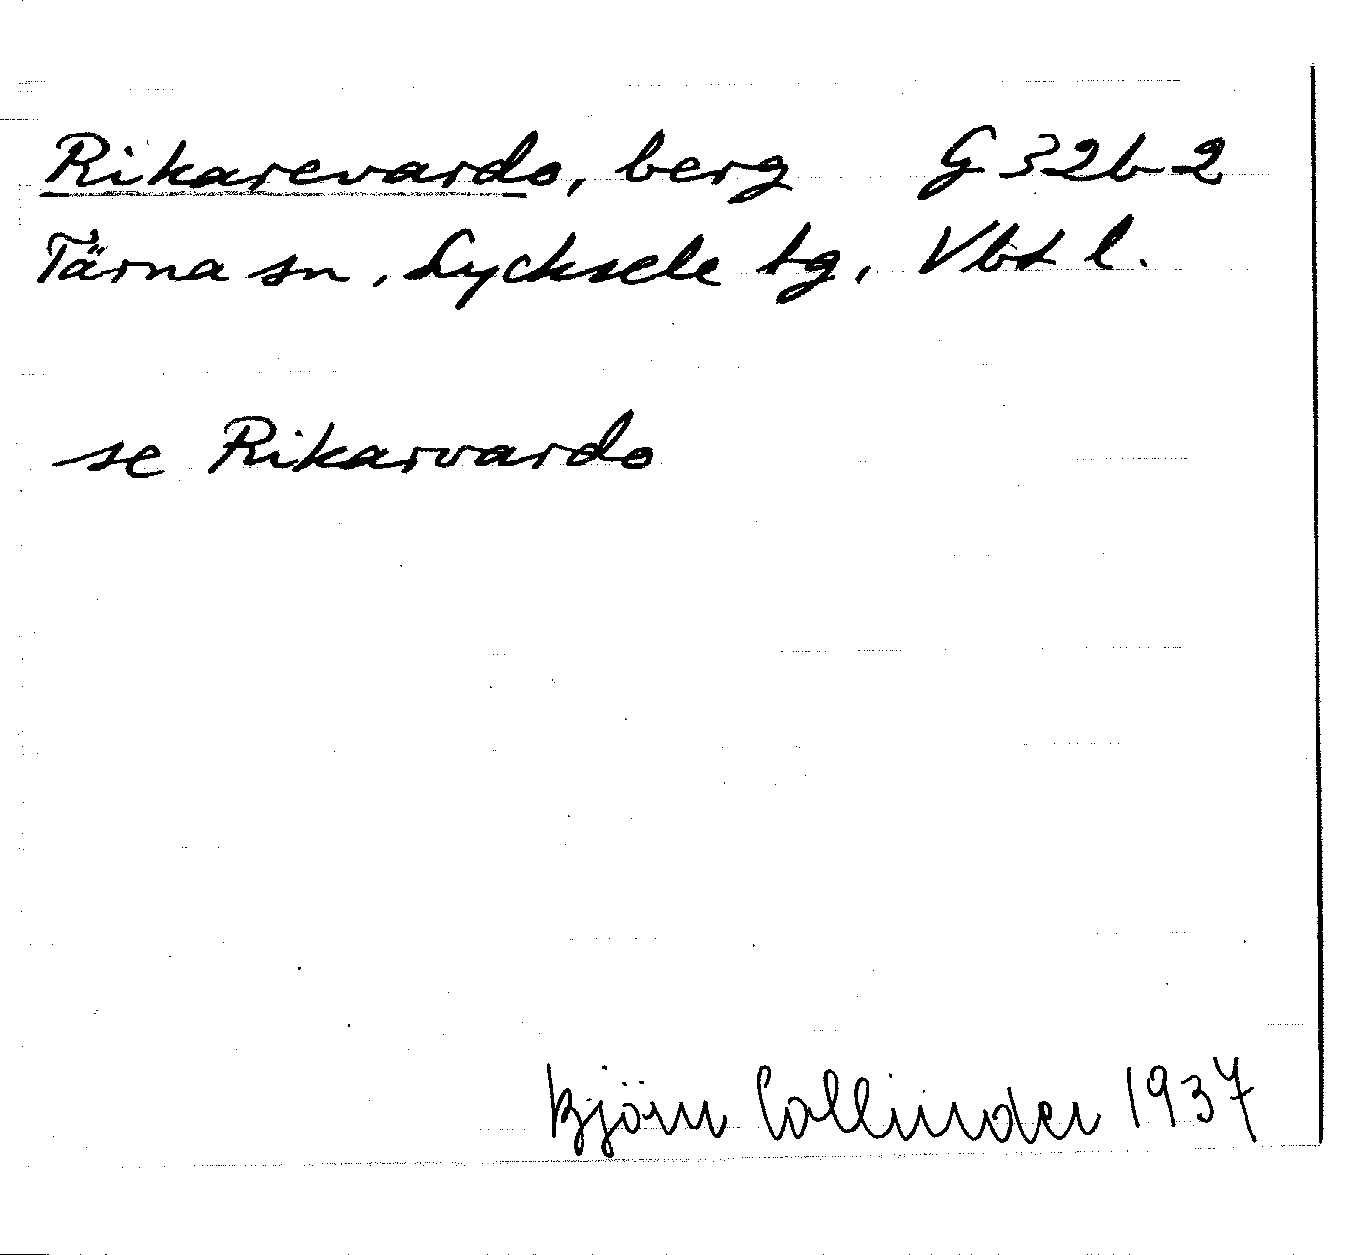 Rikarevardo, berg G 32b 2
Tärna sn, Lycksele tg, Vbt l.
se Rikarvardo
Björn Collinder 1937